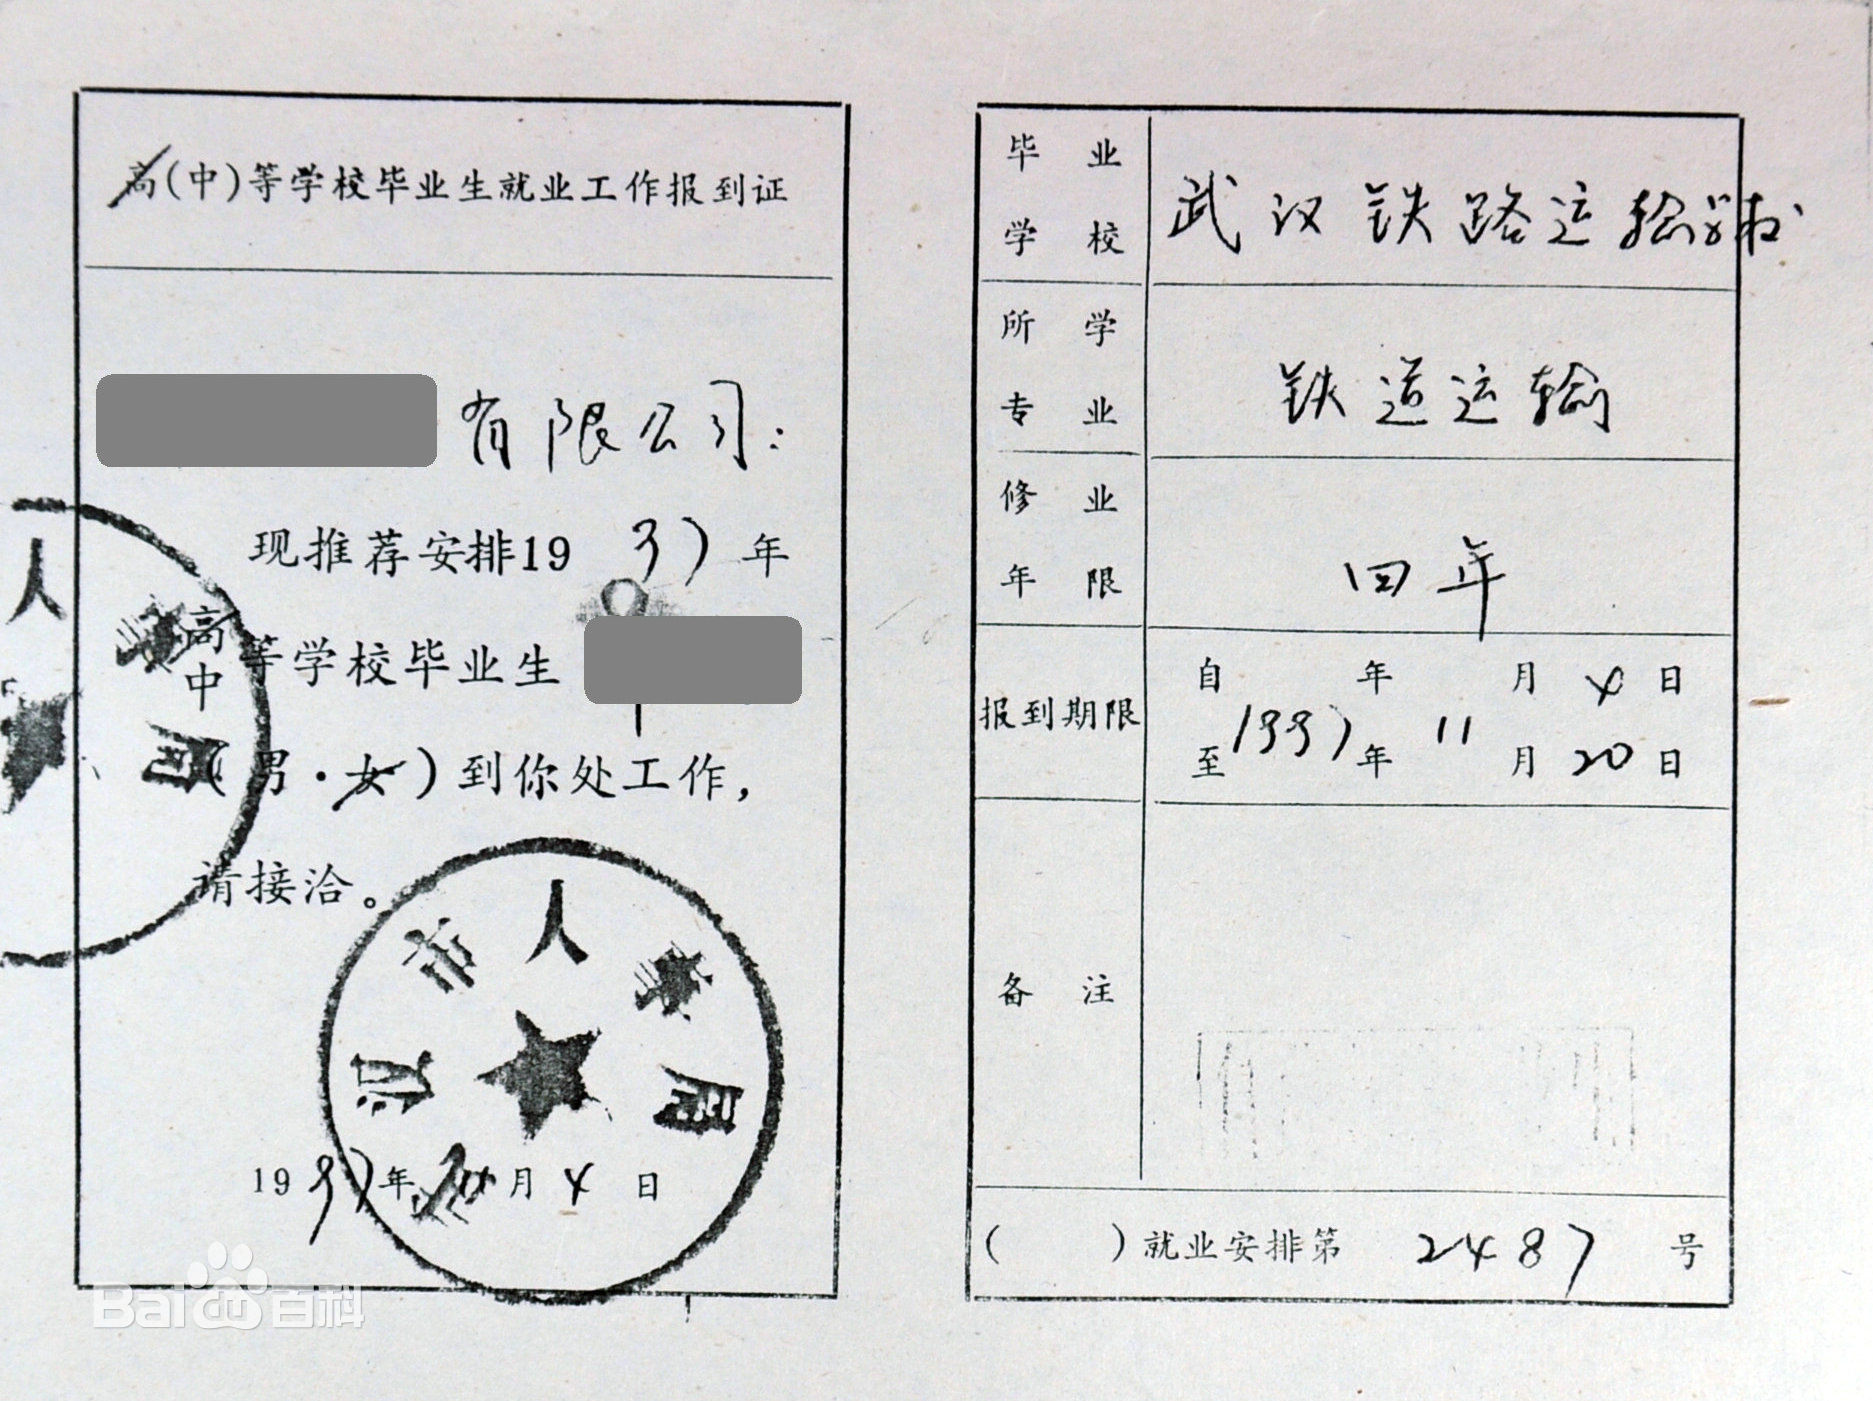 高(中)等学校毕业生就业工作报到证
有限公司:
现推荐安排1997年
高
中
等学校毕业生
(男·女)到你处工作,
请接洽。
人
市人事局
1997年 月4日
毕业学校 武汉铁路运输学校
所学专业 铁道运输
修业年限 四年
报到期限 自 年 月4日
至1997年11月20日
备注
( )就业安排第2487号
Baidu百科